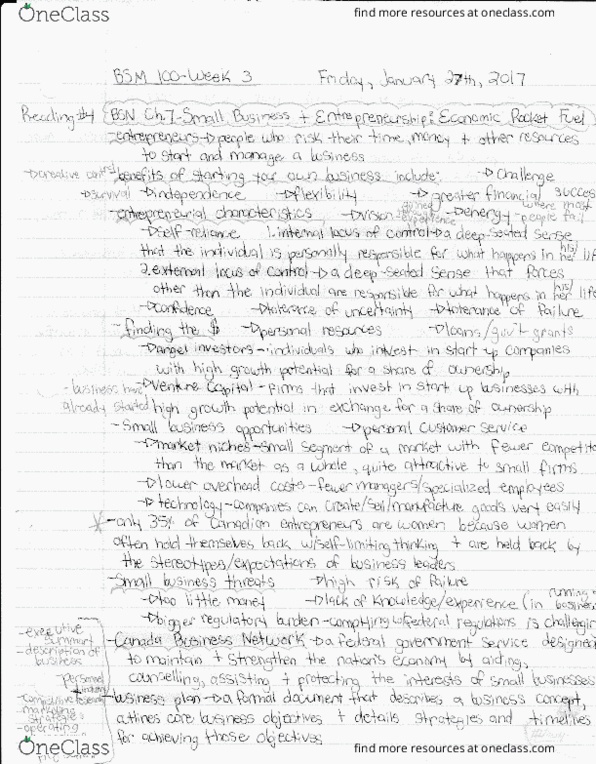 OneClass
find more resources at oneclass.com
BSM 100-Week 3 Friday, January 27th, 2017
Reading #4 BSN Ch.7-Small Business + Entrepreneurship: Economic Rocket Fuel
-entrepreneurs→people who risk their time, money + other resources
to start and manage a business
→creative control -benefits of starting your own business include: →challenge
→survival →independence →flexibility →greater financial success
-entrepreneurial characteristics →vision →energy where most people fail
→self-reliance 1. internal locus of control→a deep-seated sense
that the individual is personally responsible for what happens in his/her life
2. external locus of control→a deep-seated sense that forces
other than the individual are responsible for what happens in his/her life
→confidence →tolerance of uncertainty →tolerance of failure
-finding the $ →personal resources →loans/gov't grants
→angel investors-individuals who invest in start up companies
with high growth potential for a share of ownership
-business have →venture capital-firms that invest in start up businesses with
already started high growth potential in exchange for a share of ownership
-small business opportunities →personal customer service
→market niches-small segment of a market with fewer competito
than the market as a whole, quite attractive to small firms
→lower overhead costs-fewer managers/specialized employees
→technology-companies can create/sell/manufacture goods very easily
* -only 35% of Canadian entrepreneurs are women because women
often hold themselves back w/self-limiting thinking + are held back by
the stereotypes/expectations of business leaders
-Small business threats →high risk of failure
→too little money →lack of knowledge/experience (in running a business
→bigger regulatory burden-complying w/federal regulations is challengin
-executive summary -Canada Business Network→a federal government service designed
-description of business to maintain + strengthen the nation's economy by aiding,
counselling, assisting + protecting the interests of small businesses
-business plan→a formal document that describes a business concept,
-marketing strategies outlines core business objectives + details strategies and timelines
-operating for achieving those objectives
OneClass
find more resources at oneclass.com